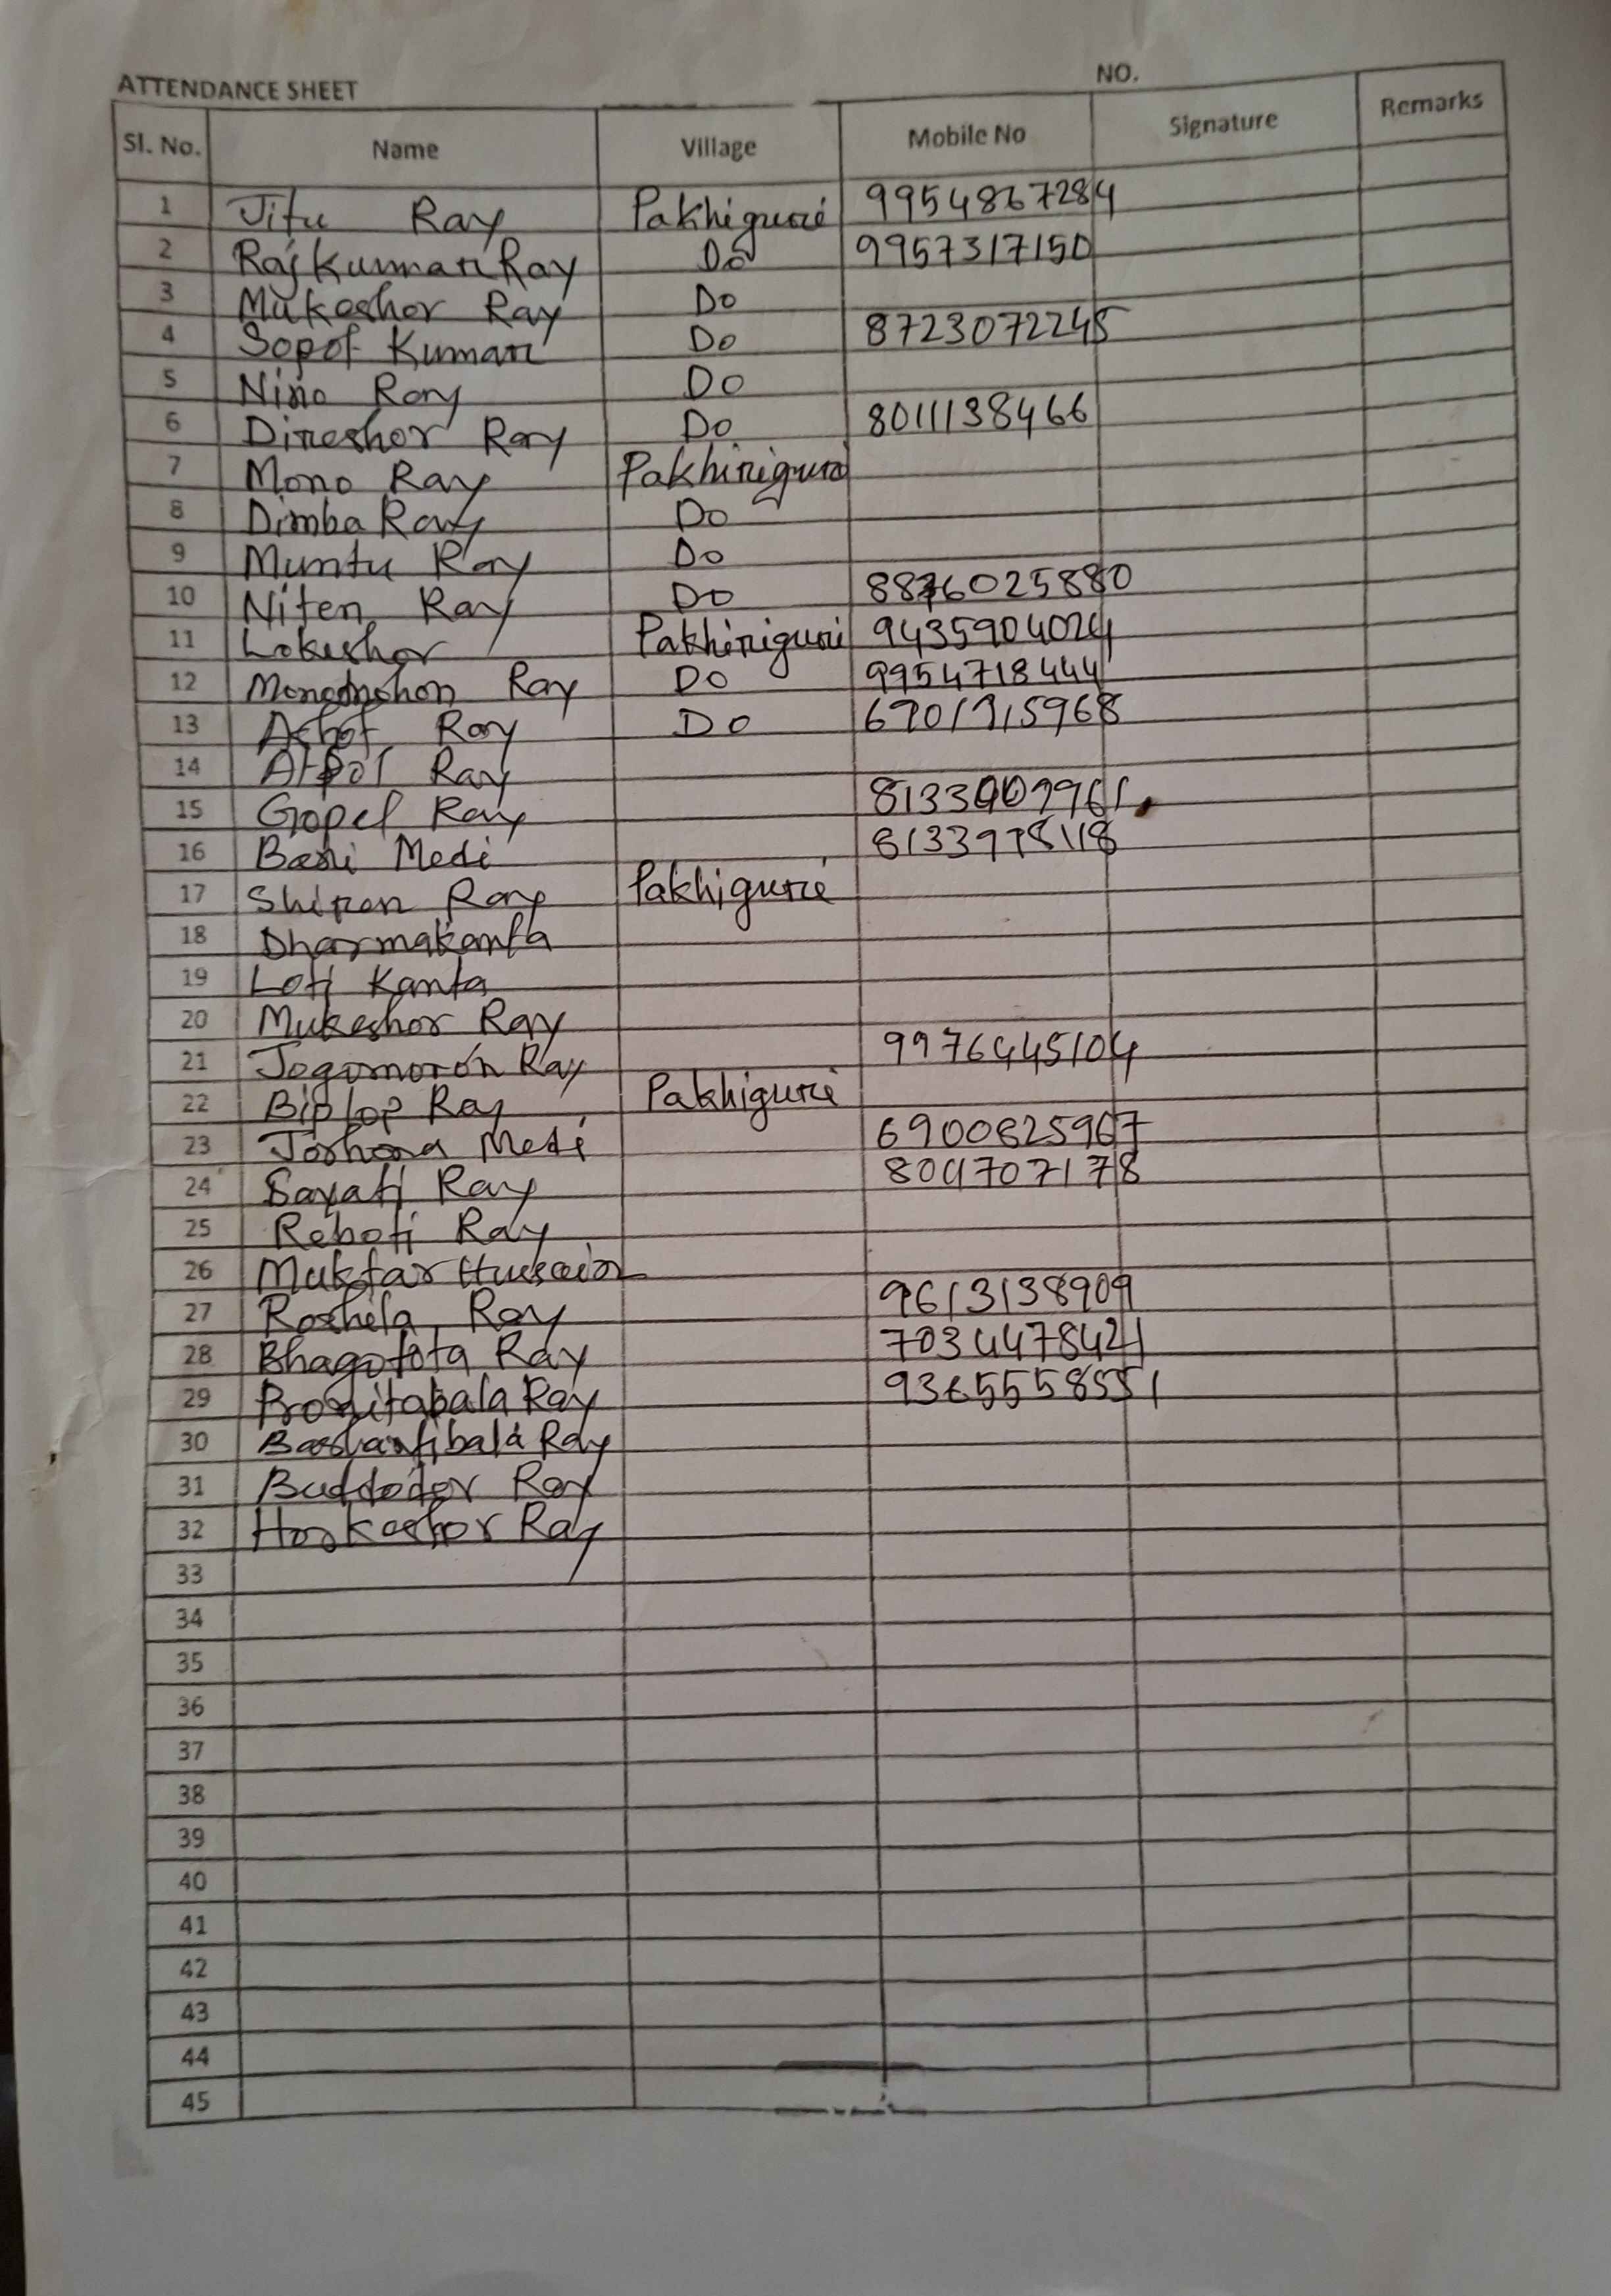 ATTENDANCE SHEET NO.
Sl. No. Name Village Mobile No Signature Remarks
1 Jitu Ray Pakhiguri 9954867284
2 Rajkumar Ray Do 9957317150
3 Mukeshor Ray Do
4 Sopot Kumar Do 8723072245
5 Niro Ray Do
6 Direshor Ray Do 8011138466
7 Mono Ray Pakhiriguri
8 Dimba Ray Do
9 Muntu Ray Do
10 Niten Ray Do 8876025880
11 Lokeshor Pakhiriguri 9435904024
12 Monomohon Ray Do 9954718444
13 Ray Do 6901915968
14 Ray
15 Gopel Ray
16 Medi 8133978118
17 Shiren Ray Pakhiguri
18 Dharmakanta
19 Loti Kanta
20 Mukeshor Ray
21 Jogomoron Ray 9976445104
22 Biplop Ray Pakhiguri
23 Medi 6900825967
24 Sayati Ray
25 Reboti Ray
26 Muktar Hussain
27 Roshila Ray 9613138909
28 Bhagotota Ray 7034478421
29 Ray 9365558551
30 Bashantibala Ray
31 Ray
32 Ray
33
34
35
36
37
38
39
40
41
42
43
44
45